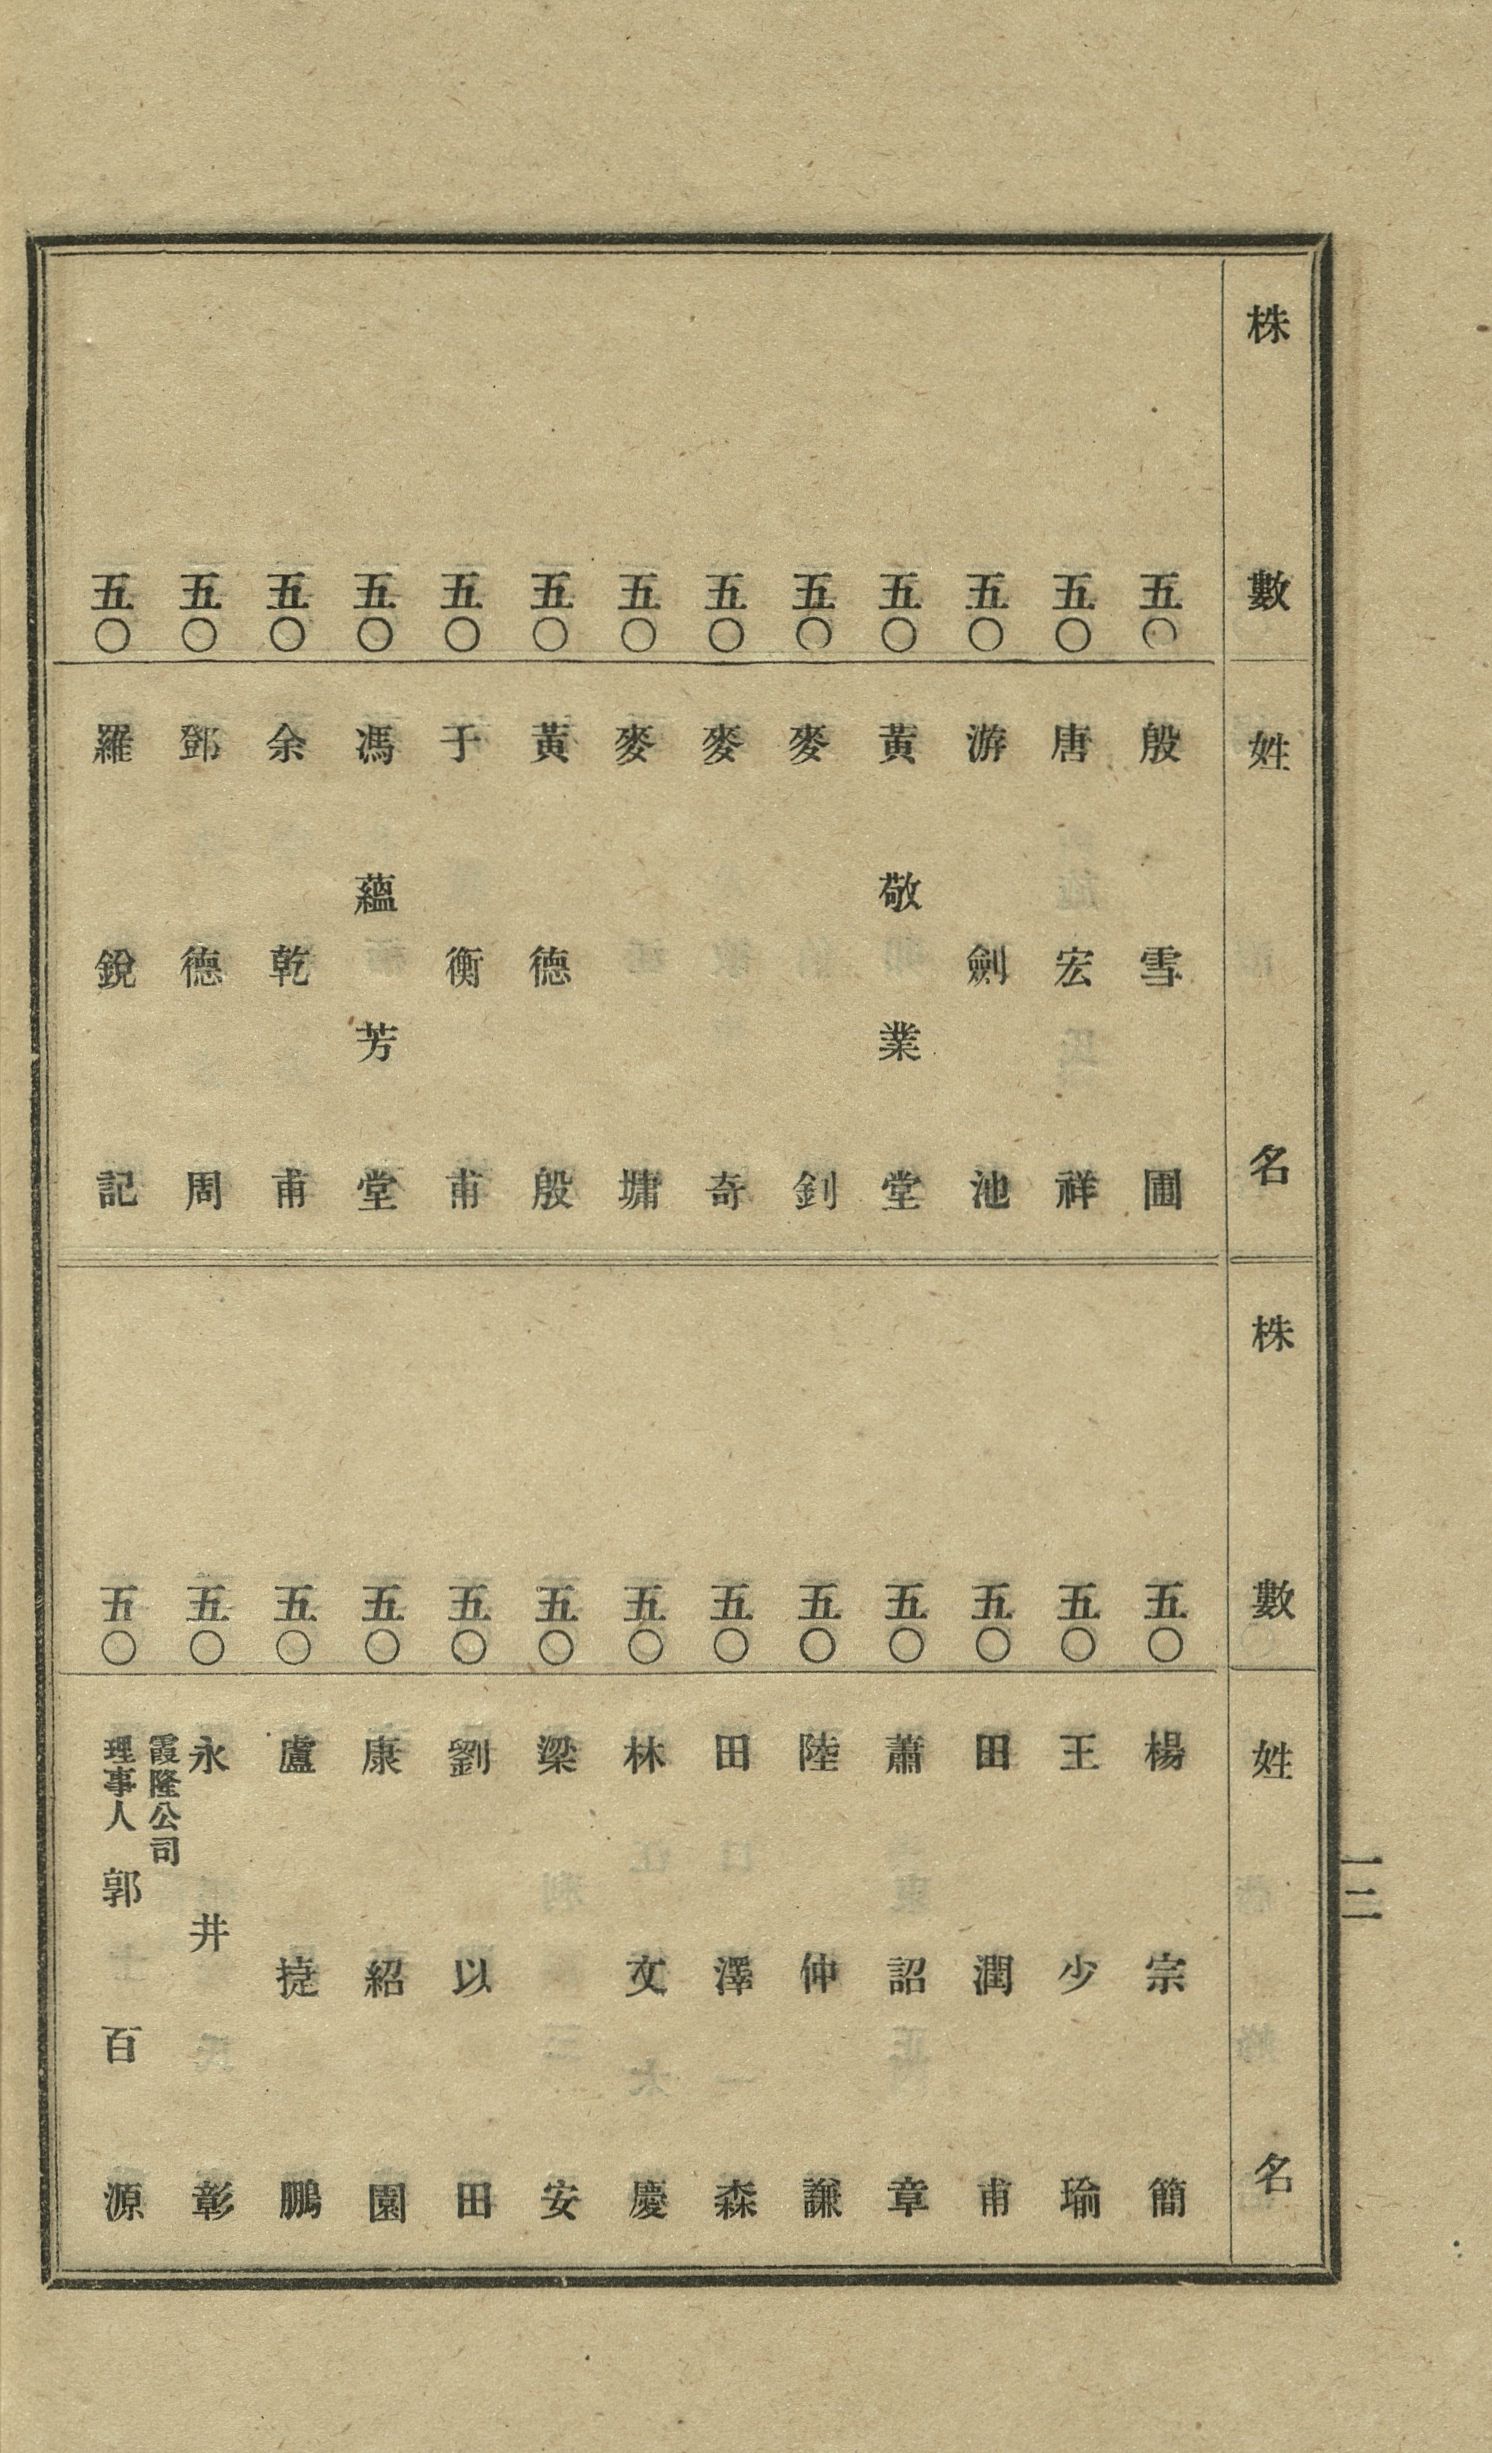 株數 姓名
五〇 殷雪圃
五〇 唐宏祥
五〇 游劍池
五〇 黃敬業堂
五〇 麥釗
五〇 麥奇
五〇 麥墉
五〇 黃德殷
五〇 于衡甫
五〇 馮蘊芳堂
五〇 余乾甫
五〇 鄧德周
五〇 羅銳記
株數 姓名
五〇 楊宗簡
五〇 王少瑜
五〇 田潤甫
五〇 蕭詔章
五〇 陸仲謙
五〇 田澤森
五〇 林文慶
五〇 梁安
五〇 劉以田
五〇 康紹園
五〇 盧㨗鵬
五〇 永井彰
五〇 霞隆公司理事人 郭百源
一二